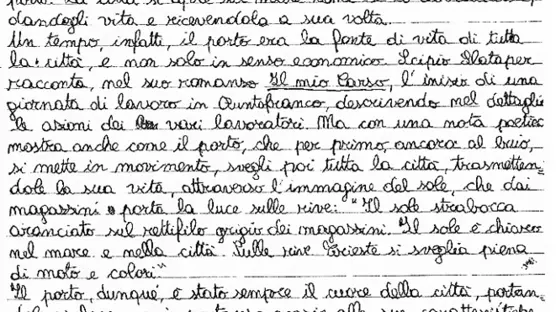 dandogli vita e ricevendola a sua volta.
Un tempo, infatti, il porto era la fonte di vita di tutta
la città, e non solo in senso economico. Scipio Slataper
racconta, nel suo romanzo Il mio Carso, l'inizio di una
giornata di lavoro in Puntofranco, descrivendo nel dettaglio
le azioni dei vari lavoratori. Ma con una nota poetica
mostra anche come il porto, che per primo, ancora al buio,
si mette in movimento, svegli poi tutta la città, trasmetten=
dole la sua vita, attraverso l'immagine del sole, che dai
magazzini porta la luce sulle rive: "Il sole strabocca
aranciato sul rettifilo grigio dei magazzini. Il sole è chiaro
nel mare e nella città. Sulle rive Trieste si sveglia piena
di moto e colori"
Il porto, dunque, è stato sempre il cuore della città, portan=